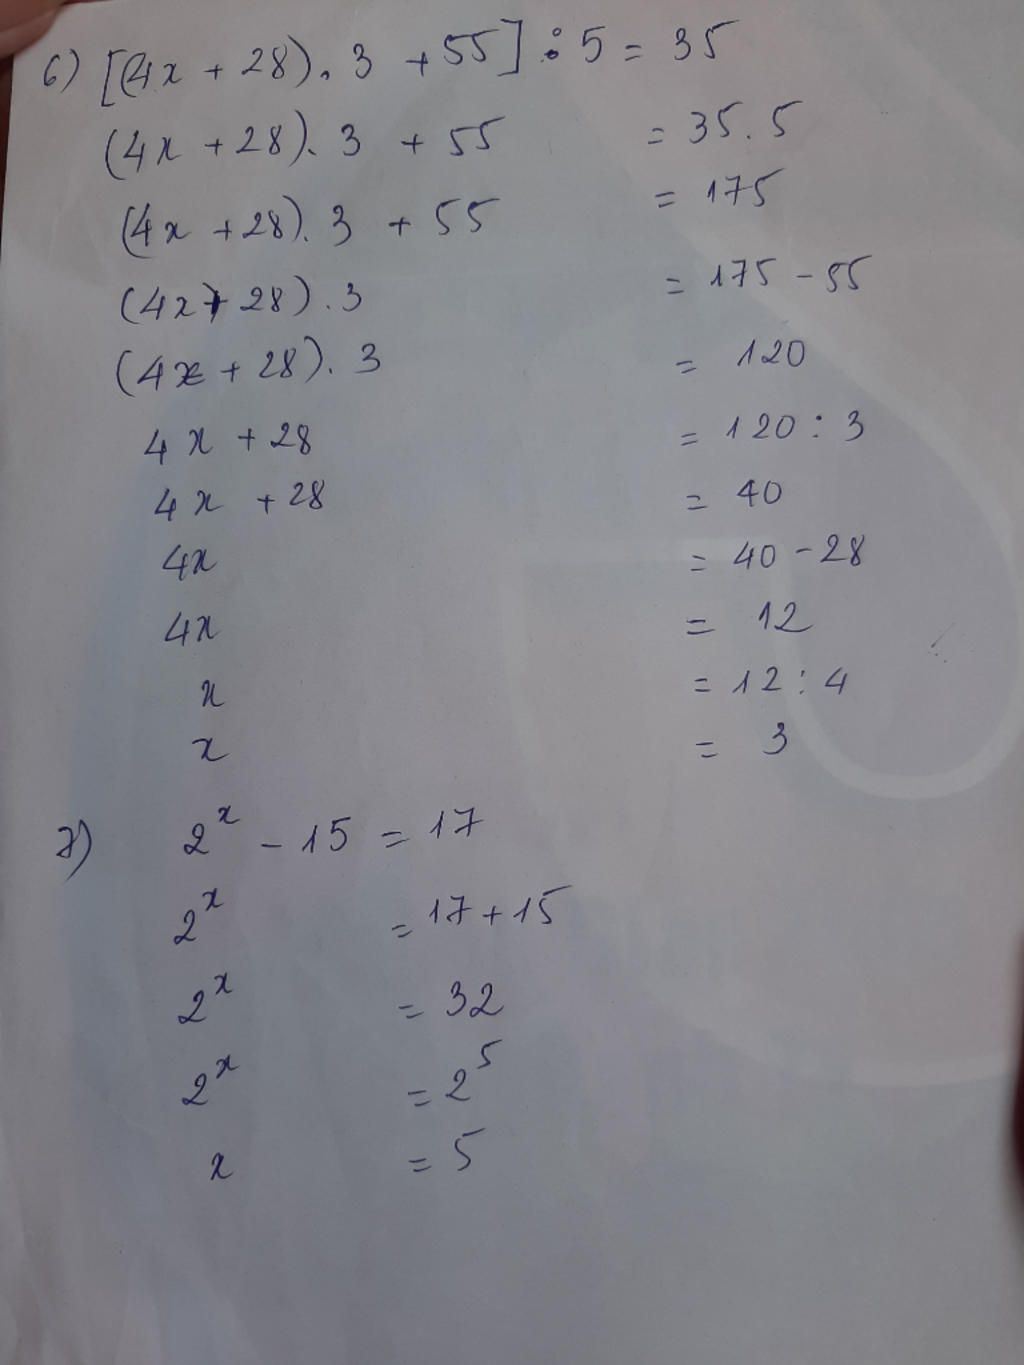 6) [(4x + 28). 3 + 55] : 5 = 35
(4x + 28). 3 + 55 = 35.5
(4x + 28). 3 + 55 = 175
(4x + 28). 3 = 175 - 55
(4x + 28). 3 = 120
4x + 28 = 120 : 3
4x + 28 = 40
4x = 40 - 28
4x = 12
x = 12 : 4
x = 3
7) 2ˣ - 15 = 17
2ˣ = 17 + 15
2ˣ = 32
2ˣ = 2⁵
x = 5